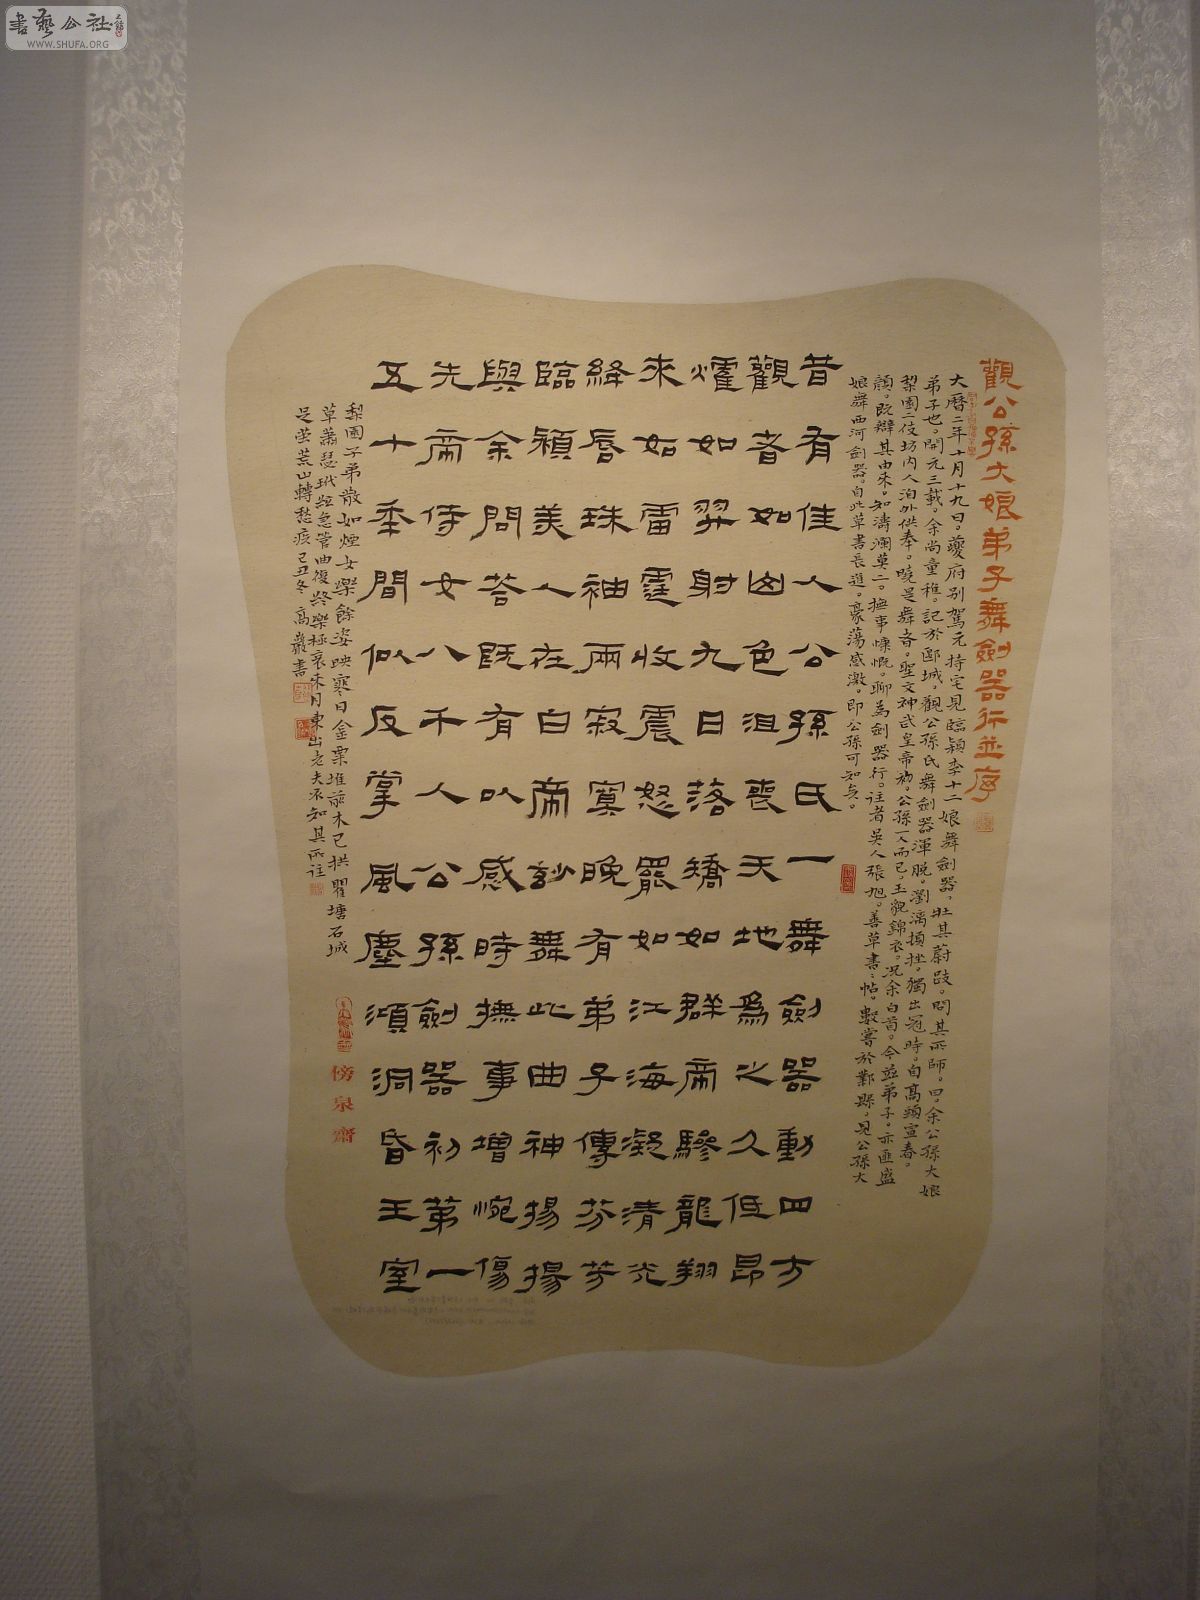 書藝公社
WWW.SHUFA.ORG
觀公孫大娘弟子舞劍器行並序
大曆二年十月十九日。夔府別駕元持宅見臨潁李十二娘舞劍器，壯其蔚跂。問其所師。曰，余公孫大娘
弟子也。開元三載。余尚童稚。記於郾城。觀公孫氏舞劍器渾脫。瀏漓頓挫。獨出冠時。自高頭宜春。
梨園二伎坊內人洎外供奉。曉是舞者。聖文神武皇帝初。公孫一人而已。玉貌錦衣。況余白首。今茲弟子。亦匪盛
顏。既辯其由來。知濤瀾莫二。撫事慷慨。聊為劍器行。往者吳人張旭。善草書。書帖。數嘗於鄴縣。見公孫大
娘舞西河劍器。自此草書長進。豪蕩感激。即公孫可知矣。
昔有佳人公孫氏一舞劍器動四方
觀者如山色沮喪天地為之久低昂
㸌如羿射九日落矯如群帝驂龍翔
來如雷霆收震怒罷如江海凝清光
絳唇珠袖兩寂寞晚有弟子傳芬芳
臨潁美人在白帝妙舞此曲神揚揚
與余問荅既有以感時撫事增惋傷
先帝侍女八千人公孫劍器初第一
五十年間似反掌風塵澒洞昏王室
梨園子弟散如煙女樂餘姿映寒日金粟堆前木已拱瞿塘石城
草蕭瑟玳筵急管曲復終樂極哀來月東出老夫不知其所往
足茧荒山轉愁疾己丑冬高嚴書
傍泉齋